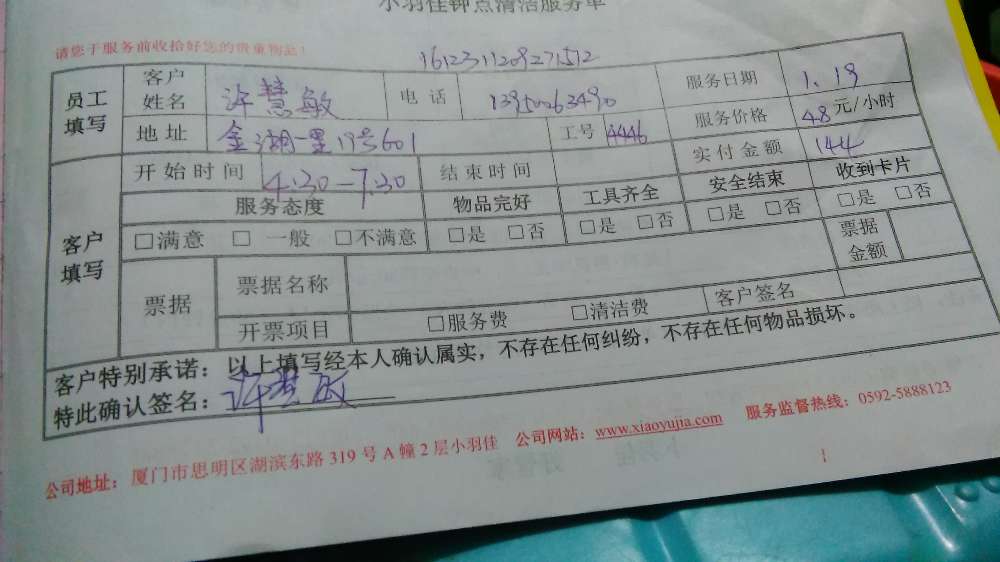 小羽佳钟点清洁服务单
请您于服务前收拾好您的贵重物品！
1612311209271512
员工填写 客户姓名 许慧敏 电话 13950063490 服务日期 1.19
地址 金湖一里19号601 工号 4446 服务价格 48元/小时
客户填写 开始时间 4.30-7.30 结束时间 实付金额 144
服务态度 物品完好 工具齐全 安全结束 收到卡片
□满意 □一般 □不满意 □是 □否 □是 □否 □是 □否 □是 □否
票据 票据名称 票据金额
开票项目 □服务费 □清洁费 客户签名
客户特别承诺：以上填写经本人确认属实，不存在任何纠纷，不存在任何物品损坏。
特此确认签名：许慧敏
公司地址：厦门市思明区湖滨东路319号A幢2层小羽佳 公司网站：www.xiaoyujia.com 服务监督热线：0592-5888123